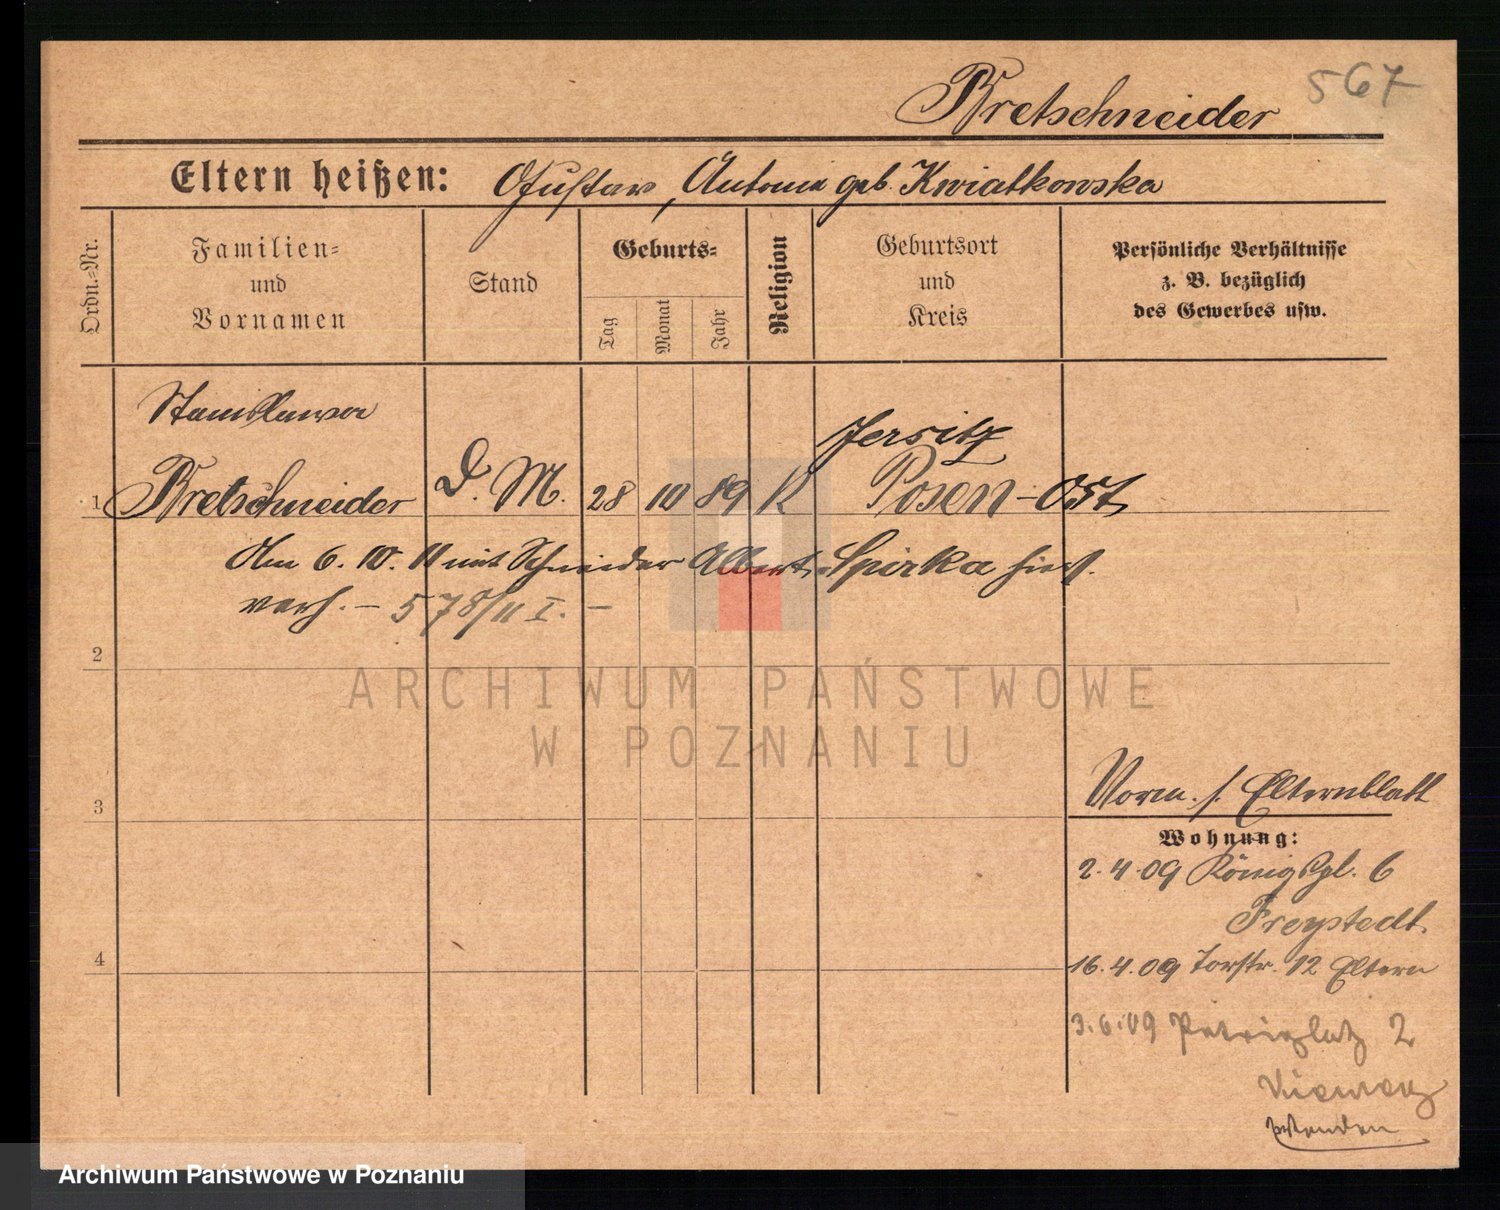 567
Bretschneider
Eltern heißen: Gustav, Antonie geb. Kwiatkowska
Ordn.=Nr.
Familien=
und
Vornamen
Stand
Geburts=
Tag
Monat
Jahr
Religion
Geburtsort
und
Kreis
Persönliche Verhältnisse
z. B. bezüglich
des Gewerbes usw.
Stanislawa
Jersitz
1 Bretschneider D. M. 28 10 89 K Posen-Ost
Am 6. 10. 11 mit Schneider Albert Spirka hies.
verh. – 578/11 I. –
2
3
4
Vorm. s. Elternblatt
Wohnung:
2.4.09 Königspl. 6
Freystedt.
16.4.09 Torstr. 12 Eltern
3.6.09 Petriplatz 2
wenden
ARCHIWUM PAŃSTWOWE
W POZNANIU
Archiwum Państwowe w Poznaniu